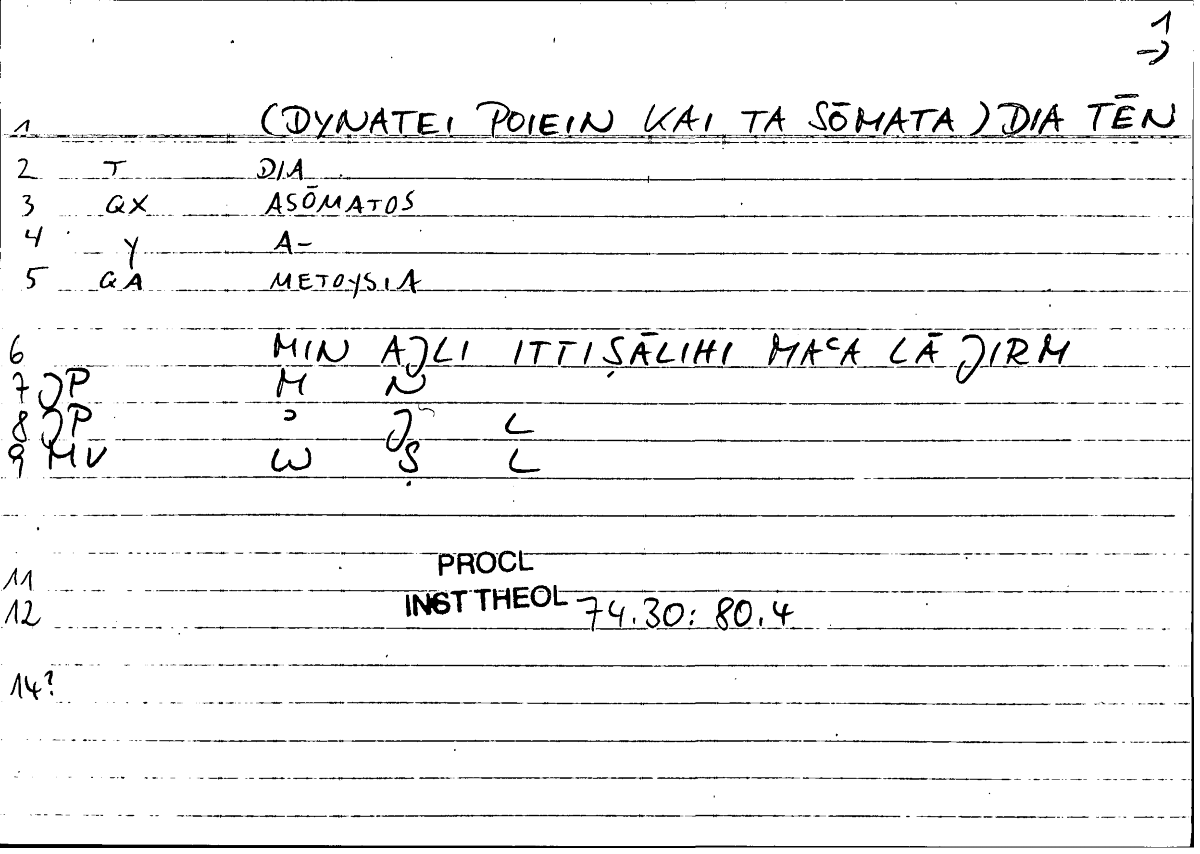 1
→
1 (DYNATEI POIEIN KAI TA SŌMATA) DIA TĒN
2 T DIA
3 QX ASŌMATOS
4 Y A-
5 QA METOYSIA
6 MIN AJLI ITTIṢĀLIHI MAʿA LĀ JIRM
7 JP M N
8 JP ʾ J L
9 MV W Ṣ L
PROCL
11
INST THEOL 74.30: 80.4
12
14?